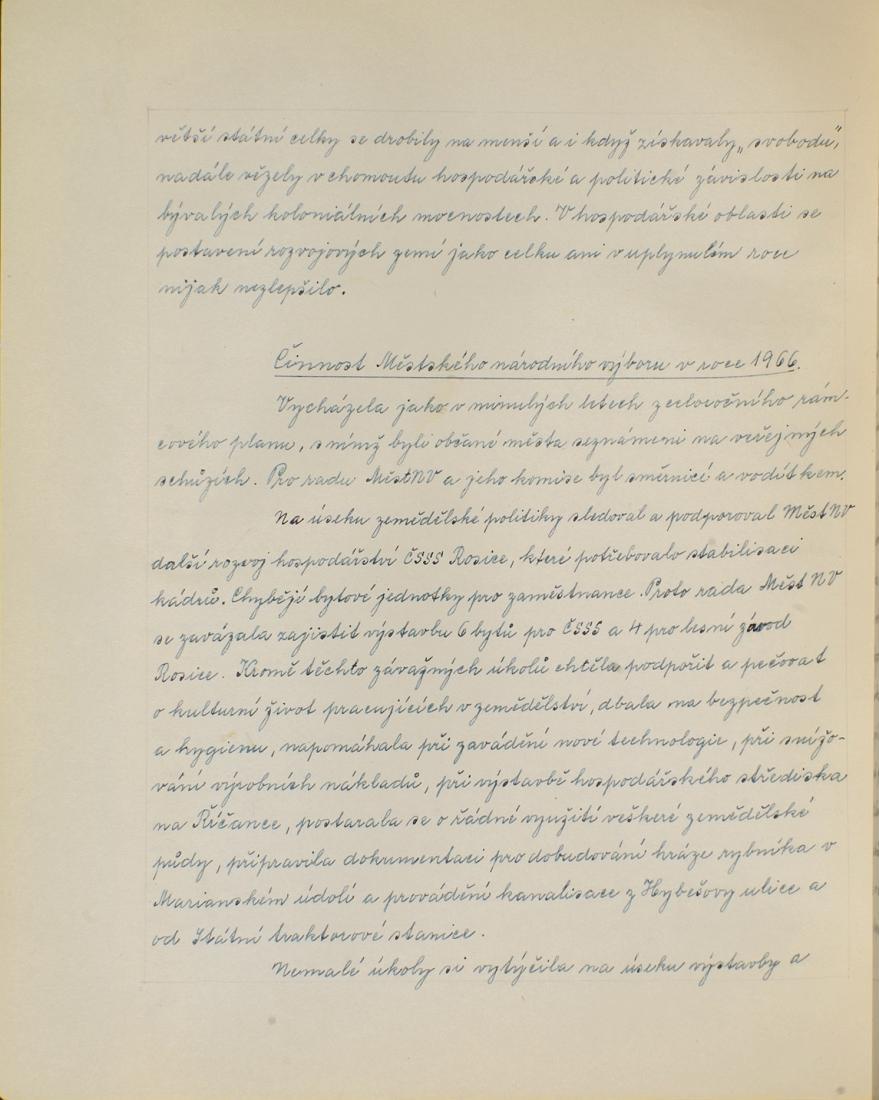 větší státní celky se drobily na menší a i když získavaly „svobodu“,
nadále vězely v chomoutu hospodářské a politické závislosti na
bývalých koloniálních mocnostech. V hospodářské oblasti se
postavení rozvojových zemí jako celku ani v uplynulém roce
nijak nezlepšilo.
Činnost Městského národního výboru v roce 1966.
Vycházela jako v minulých letech z celoročního rám-
cového planu, s nímž byli občané města seznámeni na veřejných
schůzích. Pro radu MěstNV a jeho komise byl směrnicí a vodítkem.
Na úseku zemědělské politiky sledoval a podporoval MěstNV
další rozvoj hospodářství ČSSS Rosice, které potřebovalo stabilisaci
kádrů. Chybějí bytové jednotky pro zaměstnance. Proto rada Měst NV
se zavázala zajistit výstavbu 6 bytů pro ČSSS a 4 pro lesní závod
Rosice. Kromě těchto závažných úkolů chtěla podpořit a pečovat
o kulturní život pracujících v zemědělství, dbala na bezpečnost
a hygienu, napomáhala při zavádění nové technologie, při snižo-
vání výrobních nákladů, při výstavbě hospodářského střediska
na Říčance, postarala se o řádné využití veškeré zemědělské
půdy, připravila dokumentaci pro dobudování hráze rybníka v
Marianském údolí a provádění kanalisace z Hybešovy ulice a
od Státní traktorové stanice.
Nemalé úkoly si vytýčila na úseku výstavby a